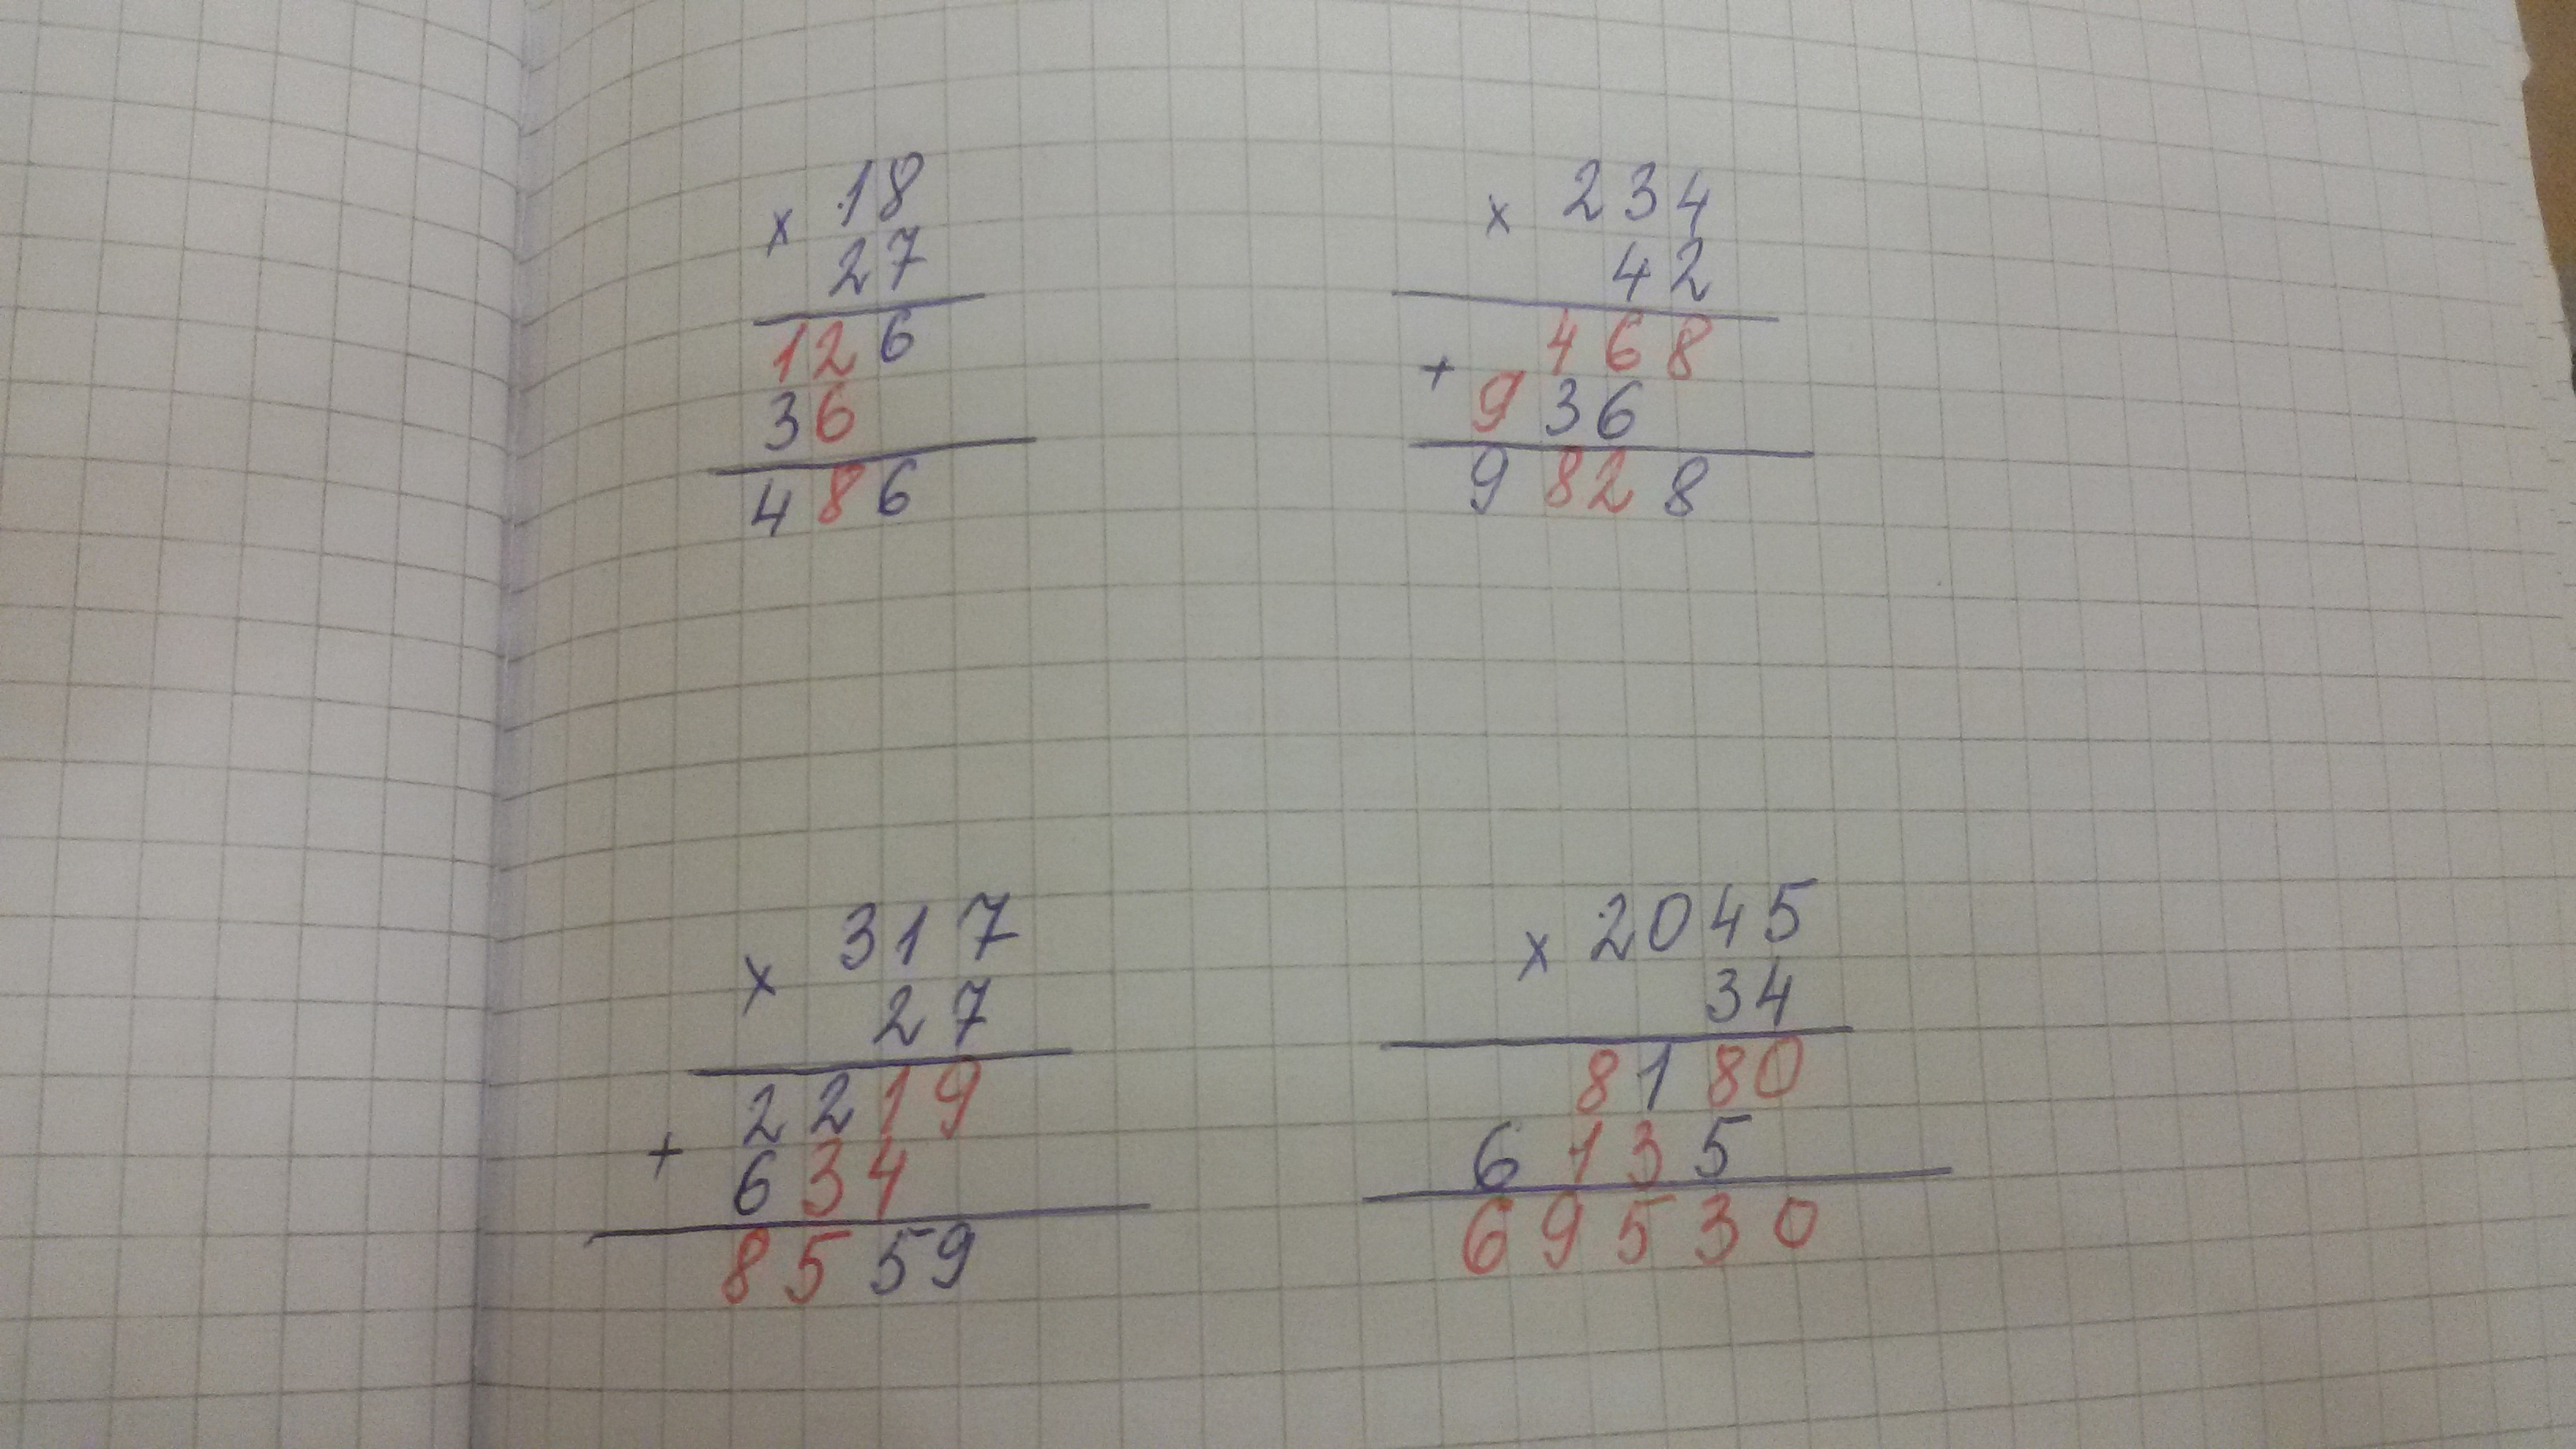 × 18
27
126
36
486
× 234
42
468
+ 936
9828
× 317
27
2219
+ 634
8559
× 2045
34
8180
6135
69530